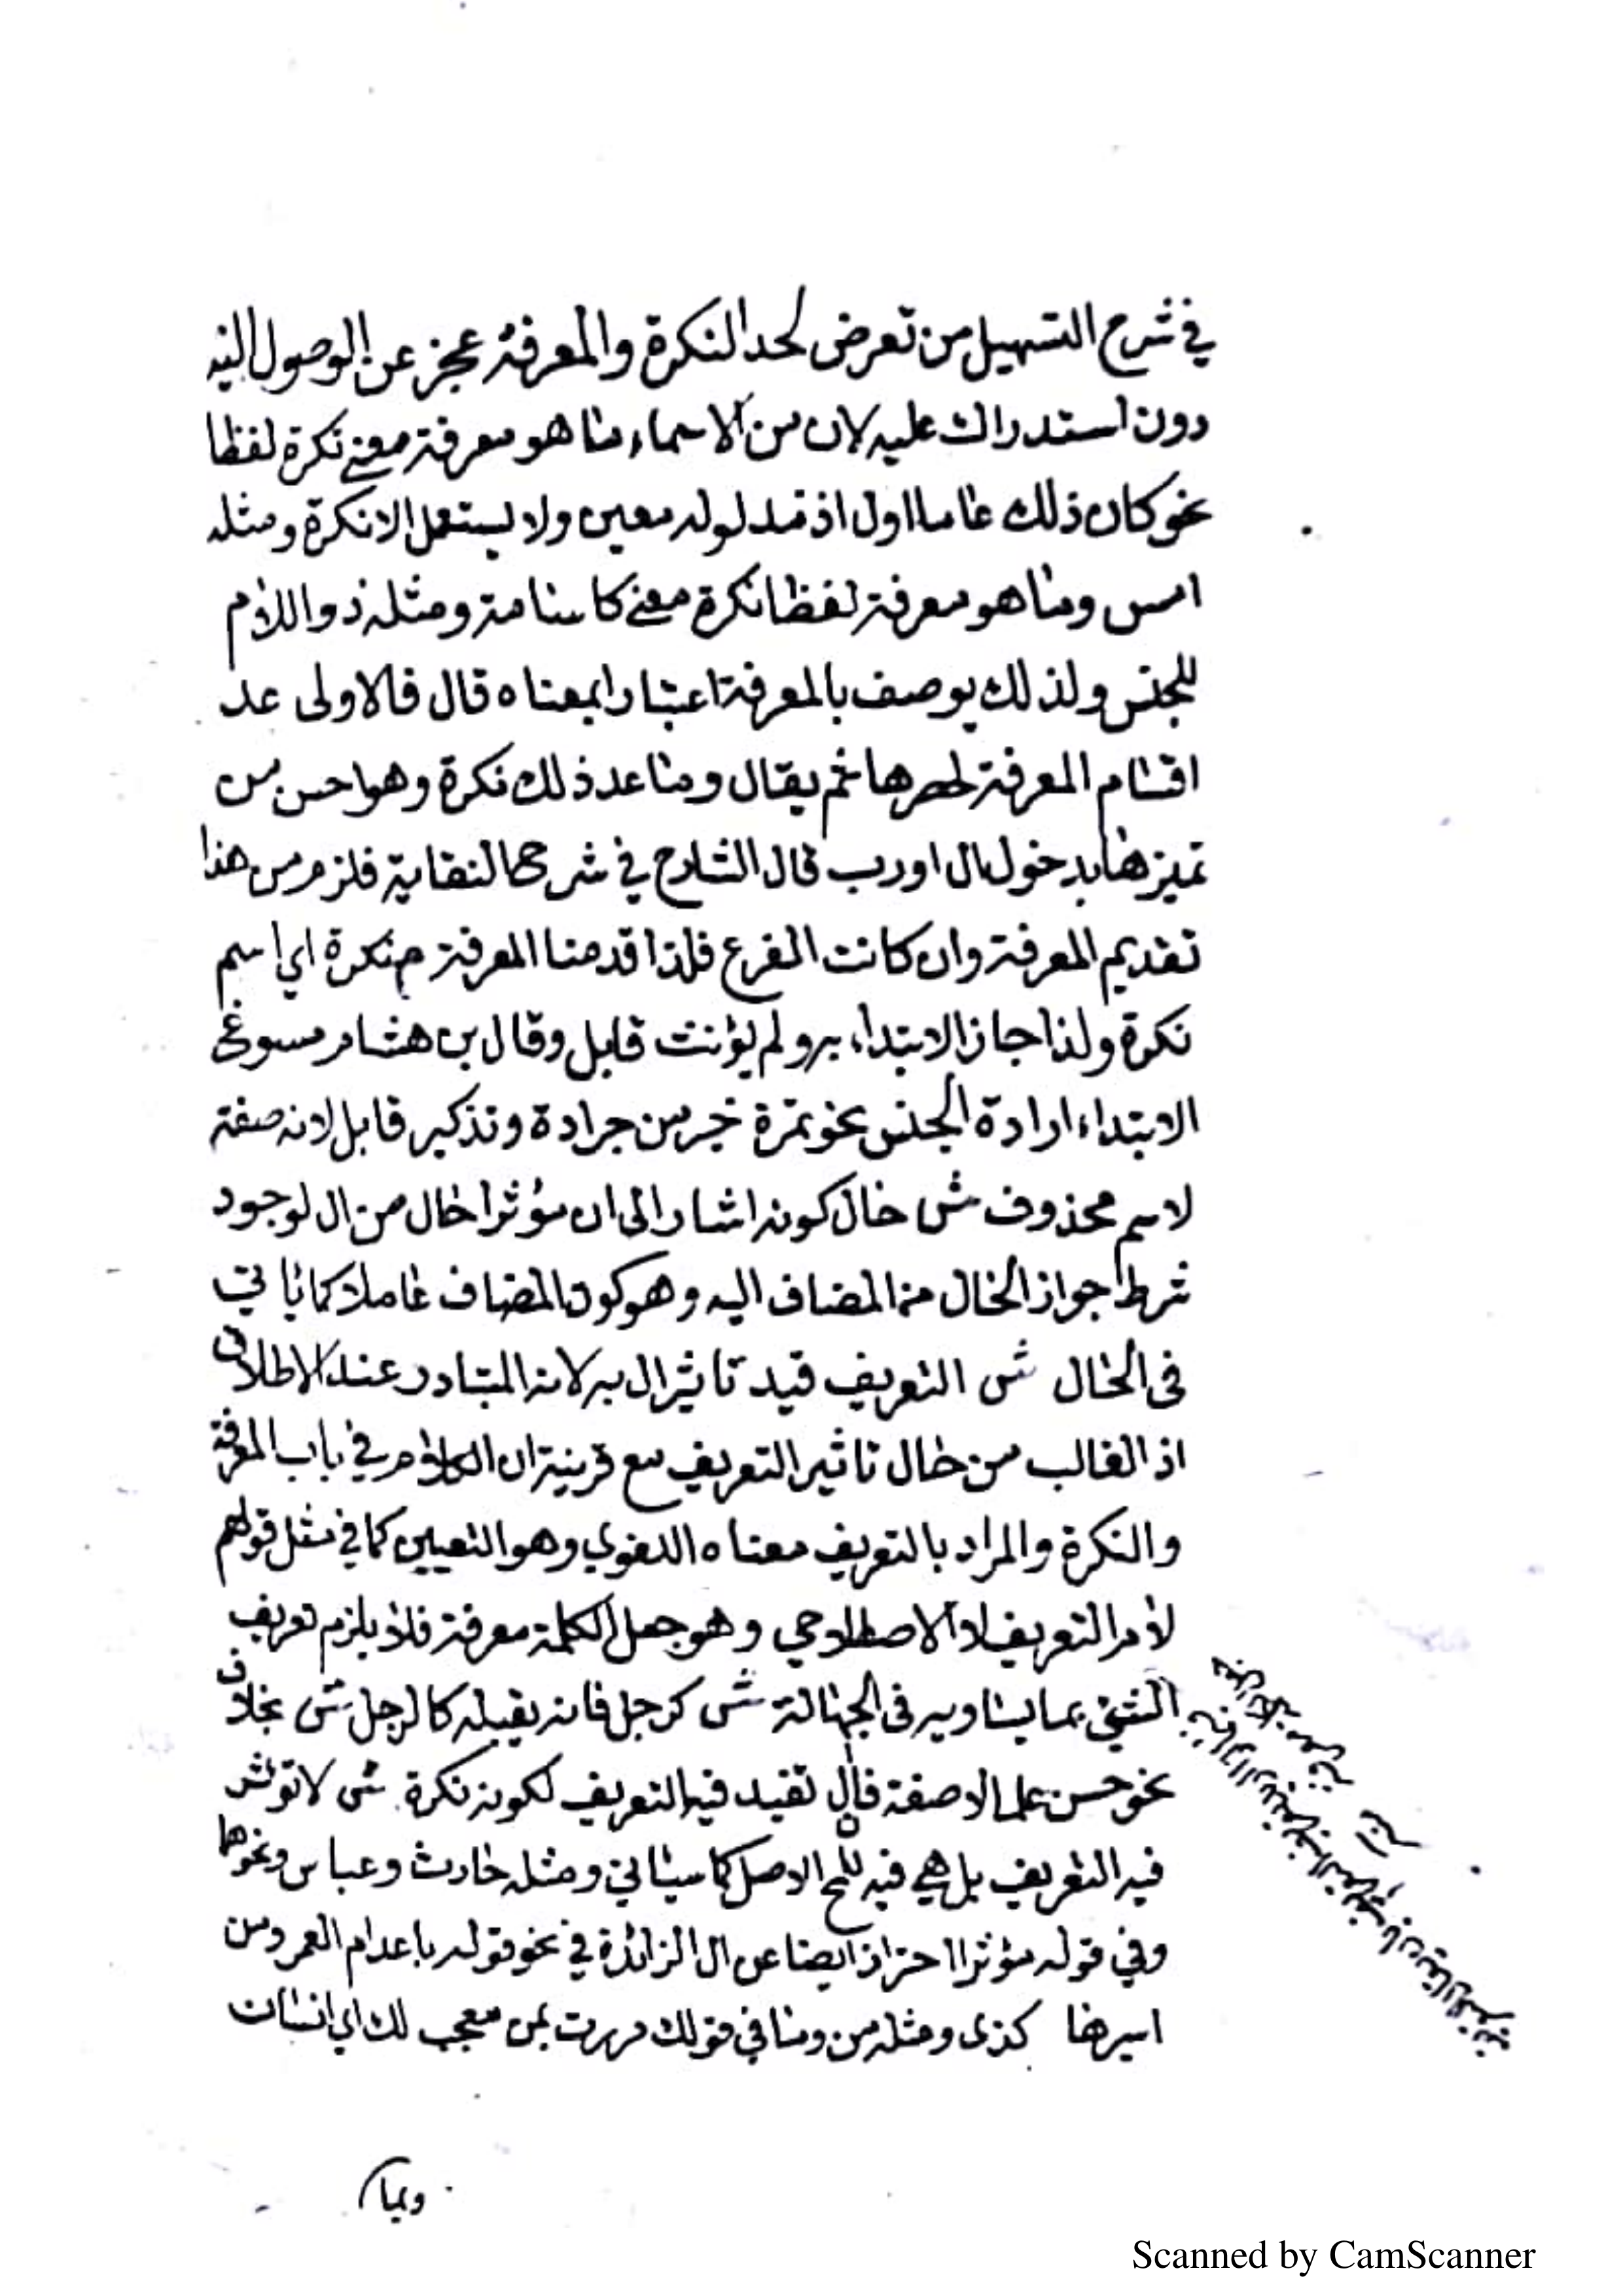 في شرح التسهيل من تعرض لحد النكرة والمعرفة عجز عن الوصول اليه
دون استدراك عليه لان من الاسماء ما هو معرفة معنى نكرة لفظا
نحو كان ذلك عاما اول اذ مدلوله معين ولا يستعمل الا نكرة ومثله
امس وما هو معرفة لفظا نكرة معنى كاسامة ومثله ذو اللام
للجنس ولذلك يوصف بالمعرفة اعتبارا بمعناه قال فالاولى عد
اقسام المعرفة لحصرها ثم يقال وما عد ذلك نكرة وهو احسن من
تميزها بدخول ال او رب قال الشارح في شرح النقاية فلزم من هذا
تقديم المعرفة وان كانت الفرع فلذا قدمنا المعرفة م نكرة اي اسم
نكرة ولذا جاز الابتداء به ولم يؤنث قابل وقال بن هشام مسوغ
الابتداء ارادة الجنس نحو تمرة خير من جرادة وتذكير قابل لانه صفة
لاسم محذوف ش حال كونه اشار الى ان مؤثرا حال من ال لوجود
شرط جواز الحال من المضاف اليه وهو كون المضاف عاملا كما ياتي
في الحال ش التعريف قيد تاثير ال به لانه المتبادر عند الاطلاق
اذ الغالب من حال تاثير التعريف مع قرينة ان الكلام في باب المعرفة
والنكرة والمراد بالتعريف معناه اللغوي وهو التعيين كما في مثل قولهم
لام التعريف لا الاصطلاحي وهو جعل الكلمة معرفة فلا يلزم تعريف
الشيئ بما يساويه في الجهالة ش كرجل فانه يقبله كالرجل ش بخلاف
نحو حسن علما لا صفة فال تفيد فيه التعريف لكونه نكرة ش لا تؤثر
فيه التعريف بل هي فيه للمح الاصل كما سياتي ومثله حارث وعباس ونحوها
وفي قوله مؤثرا احتراز ايضا عن ال الزائدة في نحو قوله باعدام العمر ومن
اسيرها كذى ومثله من وما في قولك مررت بمن معجب لك اي انسان
وبما
Scanned by CamScanner